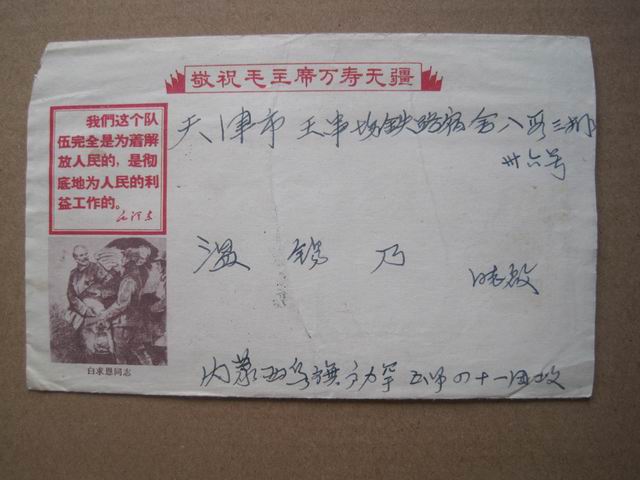 敬祝毛主席万寿无疆
我們这个队
伍完全是为着解
放人民的，是彻
底地为人民的利
益工作的。
毛泽东
天津市 王串场铁路宿舍八段三排
卅六号
温 锡 乃
收
白求恩同志
内蒙西乌旗 五师四十一团